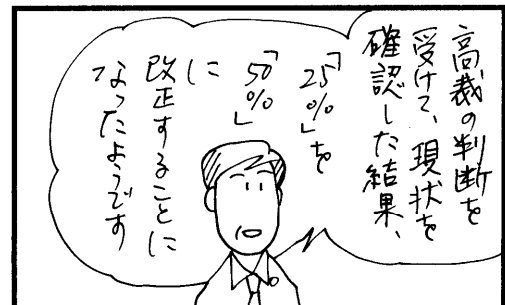 高裁の判断を
受けて、現状を
確認した結果、
「25%」を
「50%」
に
改正することに
なったようです